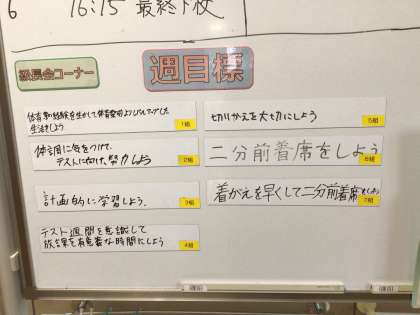 6 16:15 最終下校
級長会コーナー
週目標
体育祭の経験を生かして
生活をしよう
1組
体調に気をつけて、
テストに向け、努力しよう
2組
計画的に学習しよう。
3組
テスト週間を意識して
放課を有意義な時間にしよう
4組
切りかえを大切にしよう
5組
二分前着席をしよう
6組
着がえを早くして二分前着席をしよう
7組